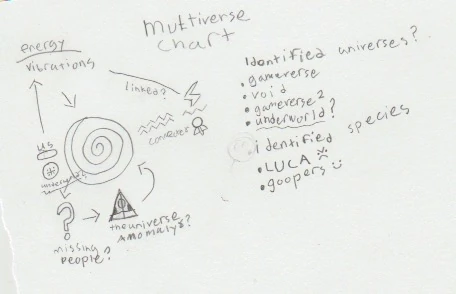 multiverse
chart
energy
vibrations
linked?
connecter
us
?
missing
people?
the universe
anomaly?
Identified universes?
• gameverse
• void
• gameverse 2
• underworld?
• identified species
• LUCA
• goopers